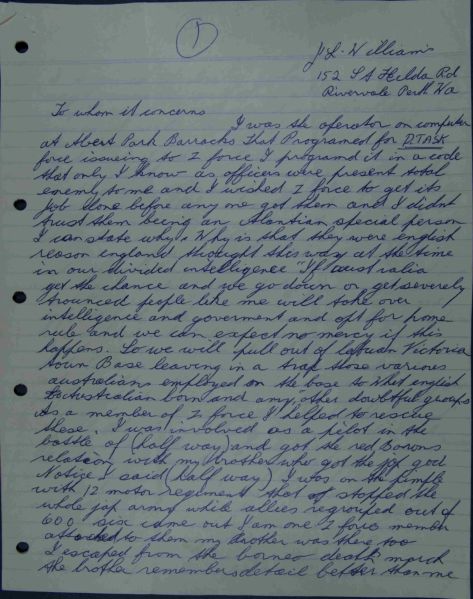 1
J L. Williams
152 St Hilda Rd
Rivervale Perth Wa
To whom it concerns
I was the operator on computer
at Albert Park Barracks That Programed for D.TASK
force issueing to Z force I programd it in a code
that only I know as officers were present total
enemy to me and I wished Z force to get its
job done before any one got them and I didnt
trust them being an Atlantian special person
I can state why. Why is that they were english
reason england thought this way at the time
in our divided intelligence "If australia
get the chance and we go down or get severely
trounced people like me will take over
intelligence and goverment and opt for home
rule and we can expect no mercy if this
happens. So we will pull out of Victoria
town Base leaving in a trap those various
australians employed on the base to what english
Australian born and any other doubtful groups
As a member of Z force I helped to rescue
these. I was involved as a pilot in the
battle of (half way) and got the red Barons
relation with my brother who got the jap god
Notice I said (half way) I was on the pimple
with 12 motor regiment that stopped the
whole jap army while allies regrouped out of
600 six came out I am one Z force member
attached to them my brother was there too
I escaped from the borneo death march
the brother remembers detail better than me